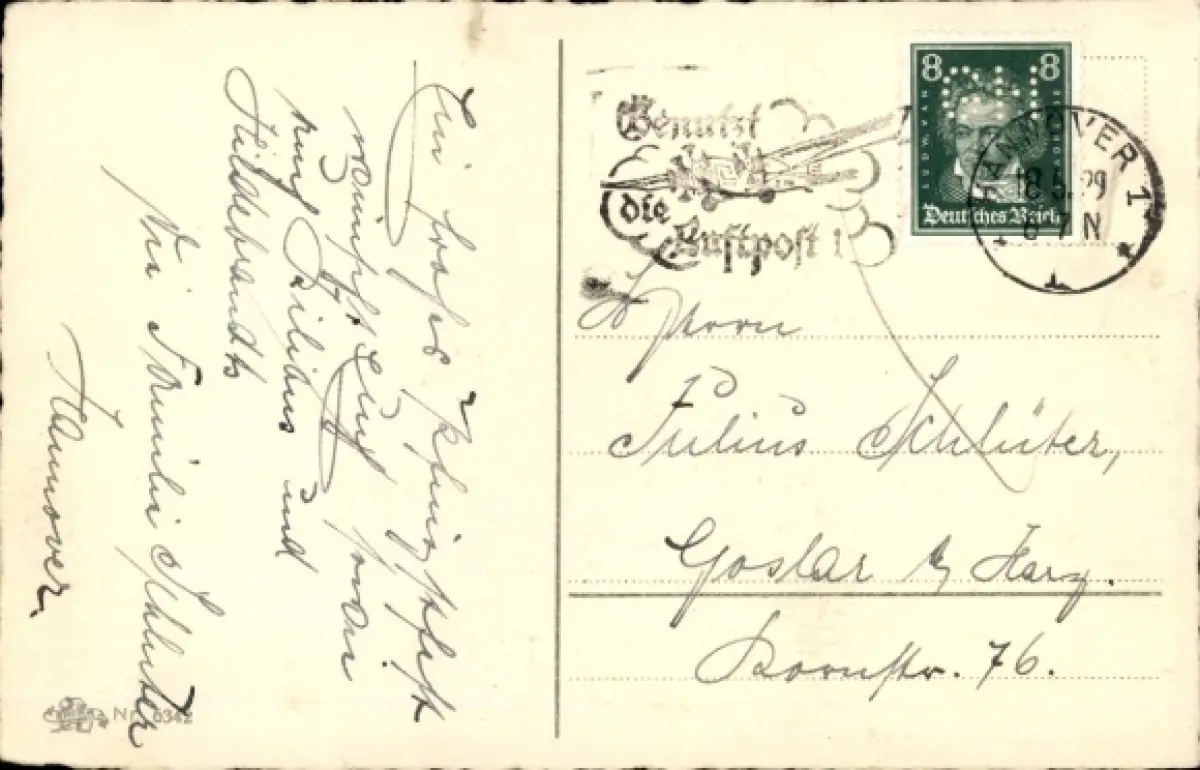 Ein frohes Pfingstfest
wünscht Euch sowie
und
Hildebrandts
Die Familie Schlüter
Hannover.
Nr. 6342
Benutzt
die
Luftpost!
8 8
LUDW. VAN
BEETHOVEN
Deutsches Reich
HANNOVER 1
18.5.29
6-7 N
Herrn
Julius Schlüter,
Goslar a/ Harz.
Kornstr. 76.